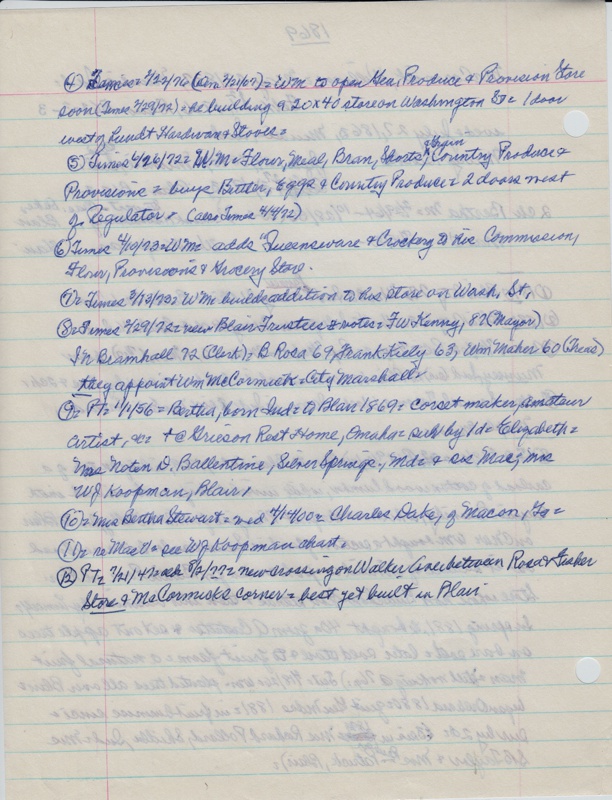 1869
④ Times = 7/22/70 (Wm 7/21/67) = Wm to open Gen, Produce & Provision Store
soon (Times 7/29/72) = he building a 20x40 store on Washington St = 1 door
west of Lundt Hardware & Stoves =
⑤ Times 4/26/72 = W.M = Flour, Meal, Bran, Shorts, Grain & Country Produce &
Provisions = buys Butter, Eggs & Country Produce = 2 doors west
of Regulator & (also Times 4/4/72)
⑥ Times 4/10/73 = Wm adds "Queensware & Crockery to his Commission,
Flour, Provisions & Grocery Store.
⑦ = Times 3/13/73 = Wm builds addition to his store on Wash, St,
⑧ = Times 2/29/72 = new Blair Trustees & votes = F W Kenny, 87 (Mayor)
Bramhall 72 (Clerk) = B Rosa 69, Frank Kiely 63, Wm Maher 60 (Treas)
they appoint Wm McCormick = City Marshall =
⑨ = PT = 1/1/56 = Bertha, born Ind = to Blair 1869 = corset maker, amateur
artist, &c = + @ Grieson Rest Home, Omaha = surv by 1 d = Elizabeth =
Mrs Noten D. Ballentine, Silver Springs, Md = & sis Mae, Mrs
W J Koopman, Blair,
⑩ = Mrs Bertha Stewart = wed 7/1400 = Charles Dake, of Macon,
⑪ = re Mae = see W J Koopman chart.
⑫ PT = 7/21/4 = new crossing on Walker Ave between Rosa & Fisher
Store & McCormicks corner = best yet built in Blair